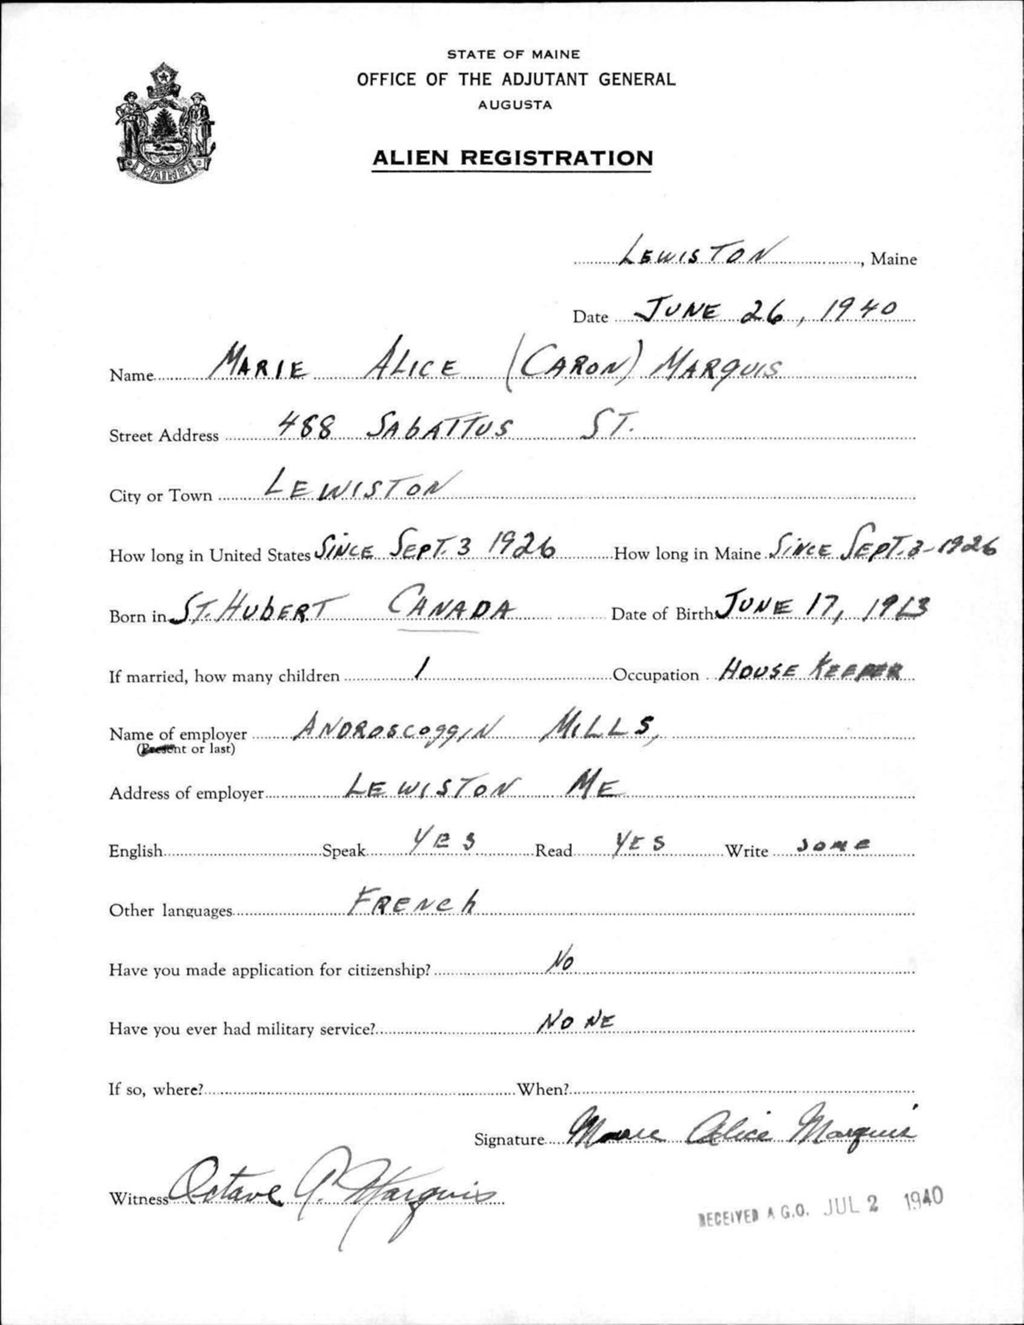 STATE OF MAINE
OFFICE OF THE ADJUTANT GENERAL
AUGUSTA
ALIEN REGISTRATION
MAINE
LEWISTON, Maine
Date JUNE 26, 1940
Name MARIE ALICE (CARON) MARQUIS
Street Address 488 SABATTUS ST.
City or Town LEWISTON
How long in United States SINCE SEPT. 3 1926 How long in Maine SINCE SEPT. 3-1926
Born in ST. HUBERT CANADA Date of Birth JUNE 17, 1913
If married, how many children 1 Occupation HOUSE KEEPER
Name of employer ANDROSCOGGIN MILLS,
(Present or last)
Address of employer LEWISTON ME
English Speak YES Read YES Write some
Other languages FRENCH
Have you made application for citizenship? NO
Have you ever had military service? NONE
If so, where? When?
Signature Marie Alice Marquis
Witness Octave P. Marquis
RECEIVED A.G.O. JUL 2 1940